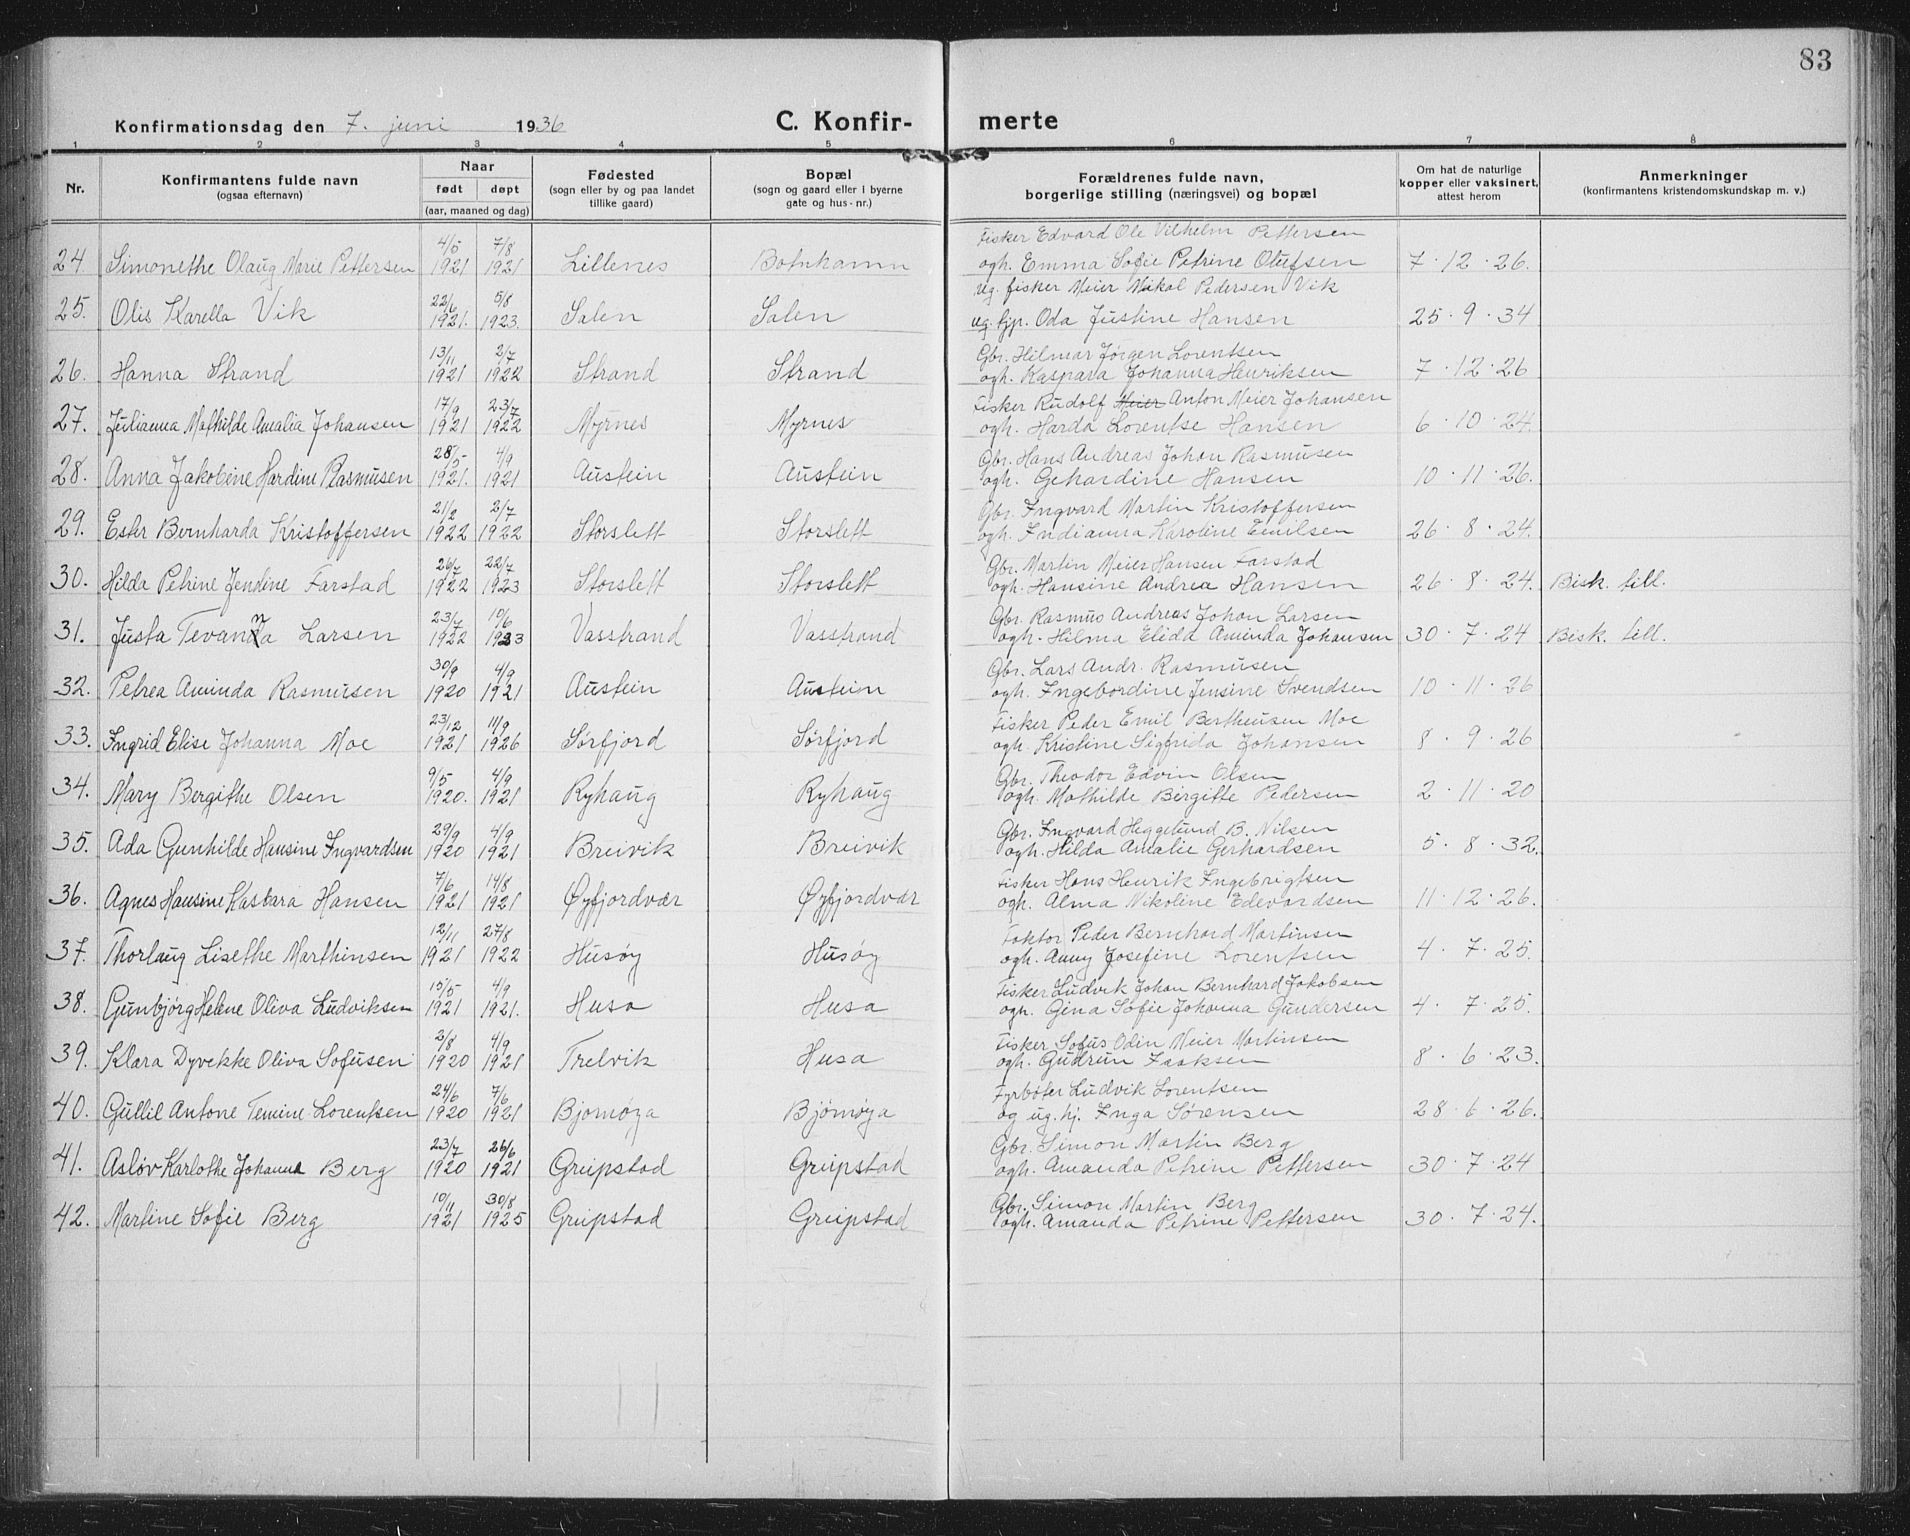 83
Konfirmationsdag den 7. juni 1936 C. Konfir- merte
1 2 3 4 5 6 7 8
Nr. Konfirmantens fulde navn (ogsaa efternavn) Naar født døpt (aar, maaned og dag) Fødested (sogn eller by og paa landet tillike gaard) Bopæl (sogn og gaard eller i byerne gate og hus-nr.) Forældrenes fulde navn, borgerlige stilling (næringsvei) og bopæl Om hat de naturlige kopper eller vaksinert, attest herom Anmerkninger (konfirmantens kristendomskundskap m. v.)
4/5 7/8 Fisker Edvard Ole Vilhelm Pettersen
24. Simonethe Olaug Marie Pettersen 1921 1921 Lillenes Botnhamn ogh. Emma Sofie Petrine Olufsen 7.12.26.
22/6 5/8 ug. fisker Meier Mikal Pedersen Vik
25. Olis Karella Vik 1921. 1923. Salen Salen ug. hjp. Oda Justine Hansen 25.9.34
13/11 2/7 Gbr. Hilmar Jørgen Lorentsen
26. Hanna Strand 1921 1922 Strand Strand ogh. Kaspara Johanna Henriksen 7.12.26
17/9 23/7 Fisker Rudolf Meier Anton Meier Johansen
27. Julianna Mathilde Amalia Johansen 1921 1922 Myrnes Myrnes ogh. Harda Lorentse Hansen 6.10.24.
28/5 4/9 Gbr. Hans Andreas Johan Rasmusen
28. Anna Jakobine Hardine Rasmusen 1921. 1921 Austein Austein ogh. Gehardine Hansen 10.11.26.
21/2 2/7 Gbr. Ingvard Martin Kristoffersen
29. Ester Bernharda Kristoffersen 1922 1922 Storslett Storslett ogh. Indianna Karoline Emilsen 26.8.24.
26/7 22/7 Gbr. Martin Meier Hansen Farstad
30. Hilda Petrine Jendine Farstad 1922 1923 Storslett Storslett ogh. Hansine Andrea Hansen 26.8.24. Bisk. till.
23/7 10/6 Gbr. Rasmus Andreas Johan Larsen
31. Justa Tevanna Larsen 1922 1923 Vasstrand Vasstrand ogh. Hilma Elida Aminda Johansen 30.7.24 Bisk. till.
30/9 4/9 Gbr. Lars Andr. Rasmusen
32. Petrea Aminda Rasmusen 1920 1921 Austein Austein ogh. Ingebordine Jensine Svendsen 10.11.26
23/12 11/9 Fisker Peder Emil Bertheusen Moe
33. Ingrid Elise Johanna Moe 1921 1926 Sørfjord Sørfjord ogh. Kristine Sigfrida Johansen 8.9.26
9/5 4/9 Gbr. Theodor Edvin Olsen
34. Mary Bergithe Olsen 1920. 1921 Ryhaug Ryhaug ogh. Mathilde Birgitte Pedersen 2.11.20
29/9 4/9 Gbr. Ingvard Heggelund B. Nilsen
35. Ada Gunhilde Hansine Ingvardsen 1920 1921 Breivik Breivik ogh. Hilda Amalie Gerhardsen 5.8.32.
7/6 14/8 Fisker Hans Henrik Ingebrigtsen
36. Agnes Hansine Kasbara Hansen 1921 1921 Øyfjordvær Øyfjordvær ogh. Alma Nikoline Edevardsen 11.12.26.
12/11 27/8 Faktor Peder Bernhard Martinsen
37. Thorlaug Lisethe Marthinsen 1921 1922 Husøy Husøy ogh. Anny Josefine Lorentsen 4.7.25.
15/5 4/9 Fisker Ludvik Johan Bernhard Jakobsen
38. Gunbjørg Helene Oliva Ludviksen 1921 1921. Husa Husa ogh. Gina Sofie Johanna Gundersen 4.7.25.
3/8 4/9 Fisker Sofus Odin Meier Martinsen
39. Klara Dyvekke Oliva Sofusen 1920 1921 Trelvik Husa ogh. Gudrun Isaksen 8.6.23.
24/6 7/6 Fyrbøter Ludvik Lorentsen
40. Gullil Antone Temine Lorentsen 1920 1921 Bjornøya Bjørnøya og ug. hj. Inga Sørensen 28.6.26.
23/7 26/6 Gbr. Simon Martin Berg
41. Asløv Karlothe Johanna Berg 1920 1921 Greipstad Greipstad ogh. Amanda Petrine Pettersen 30.7.24
10/11 30/8 Gbr. Simon Martin Berg
42. Martine Sofie Berg 1921 1925 Greipstad Greipstad ogh. Amanda Petrine Pettersen 30.7.24.